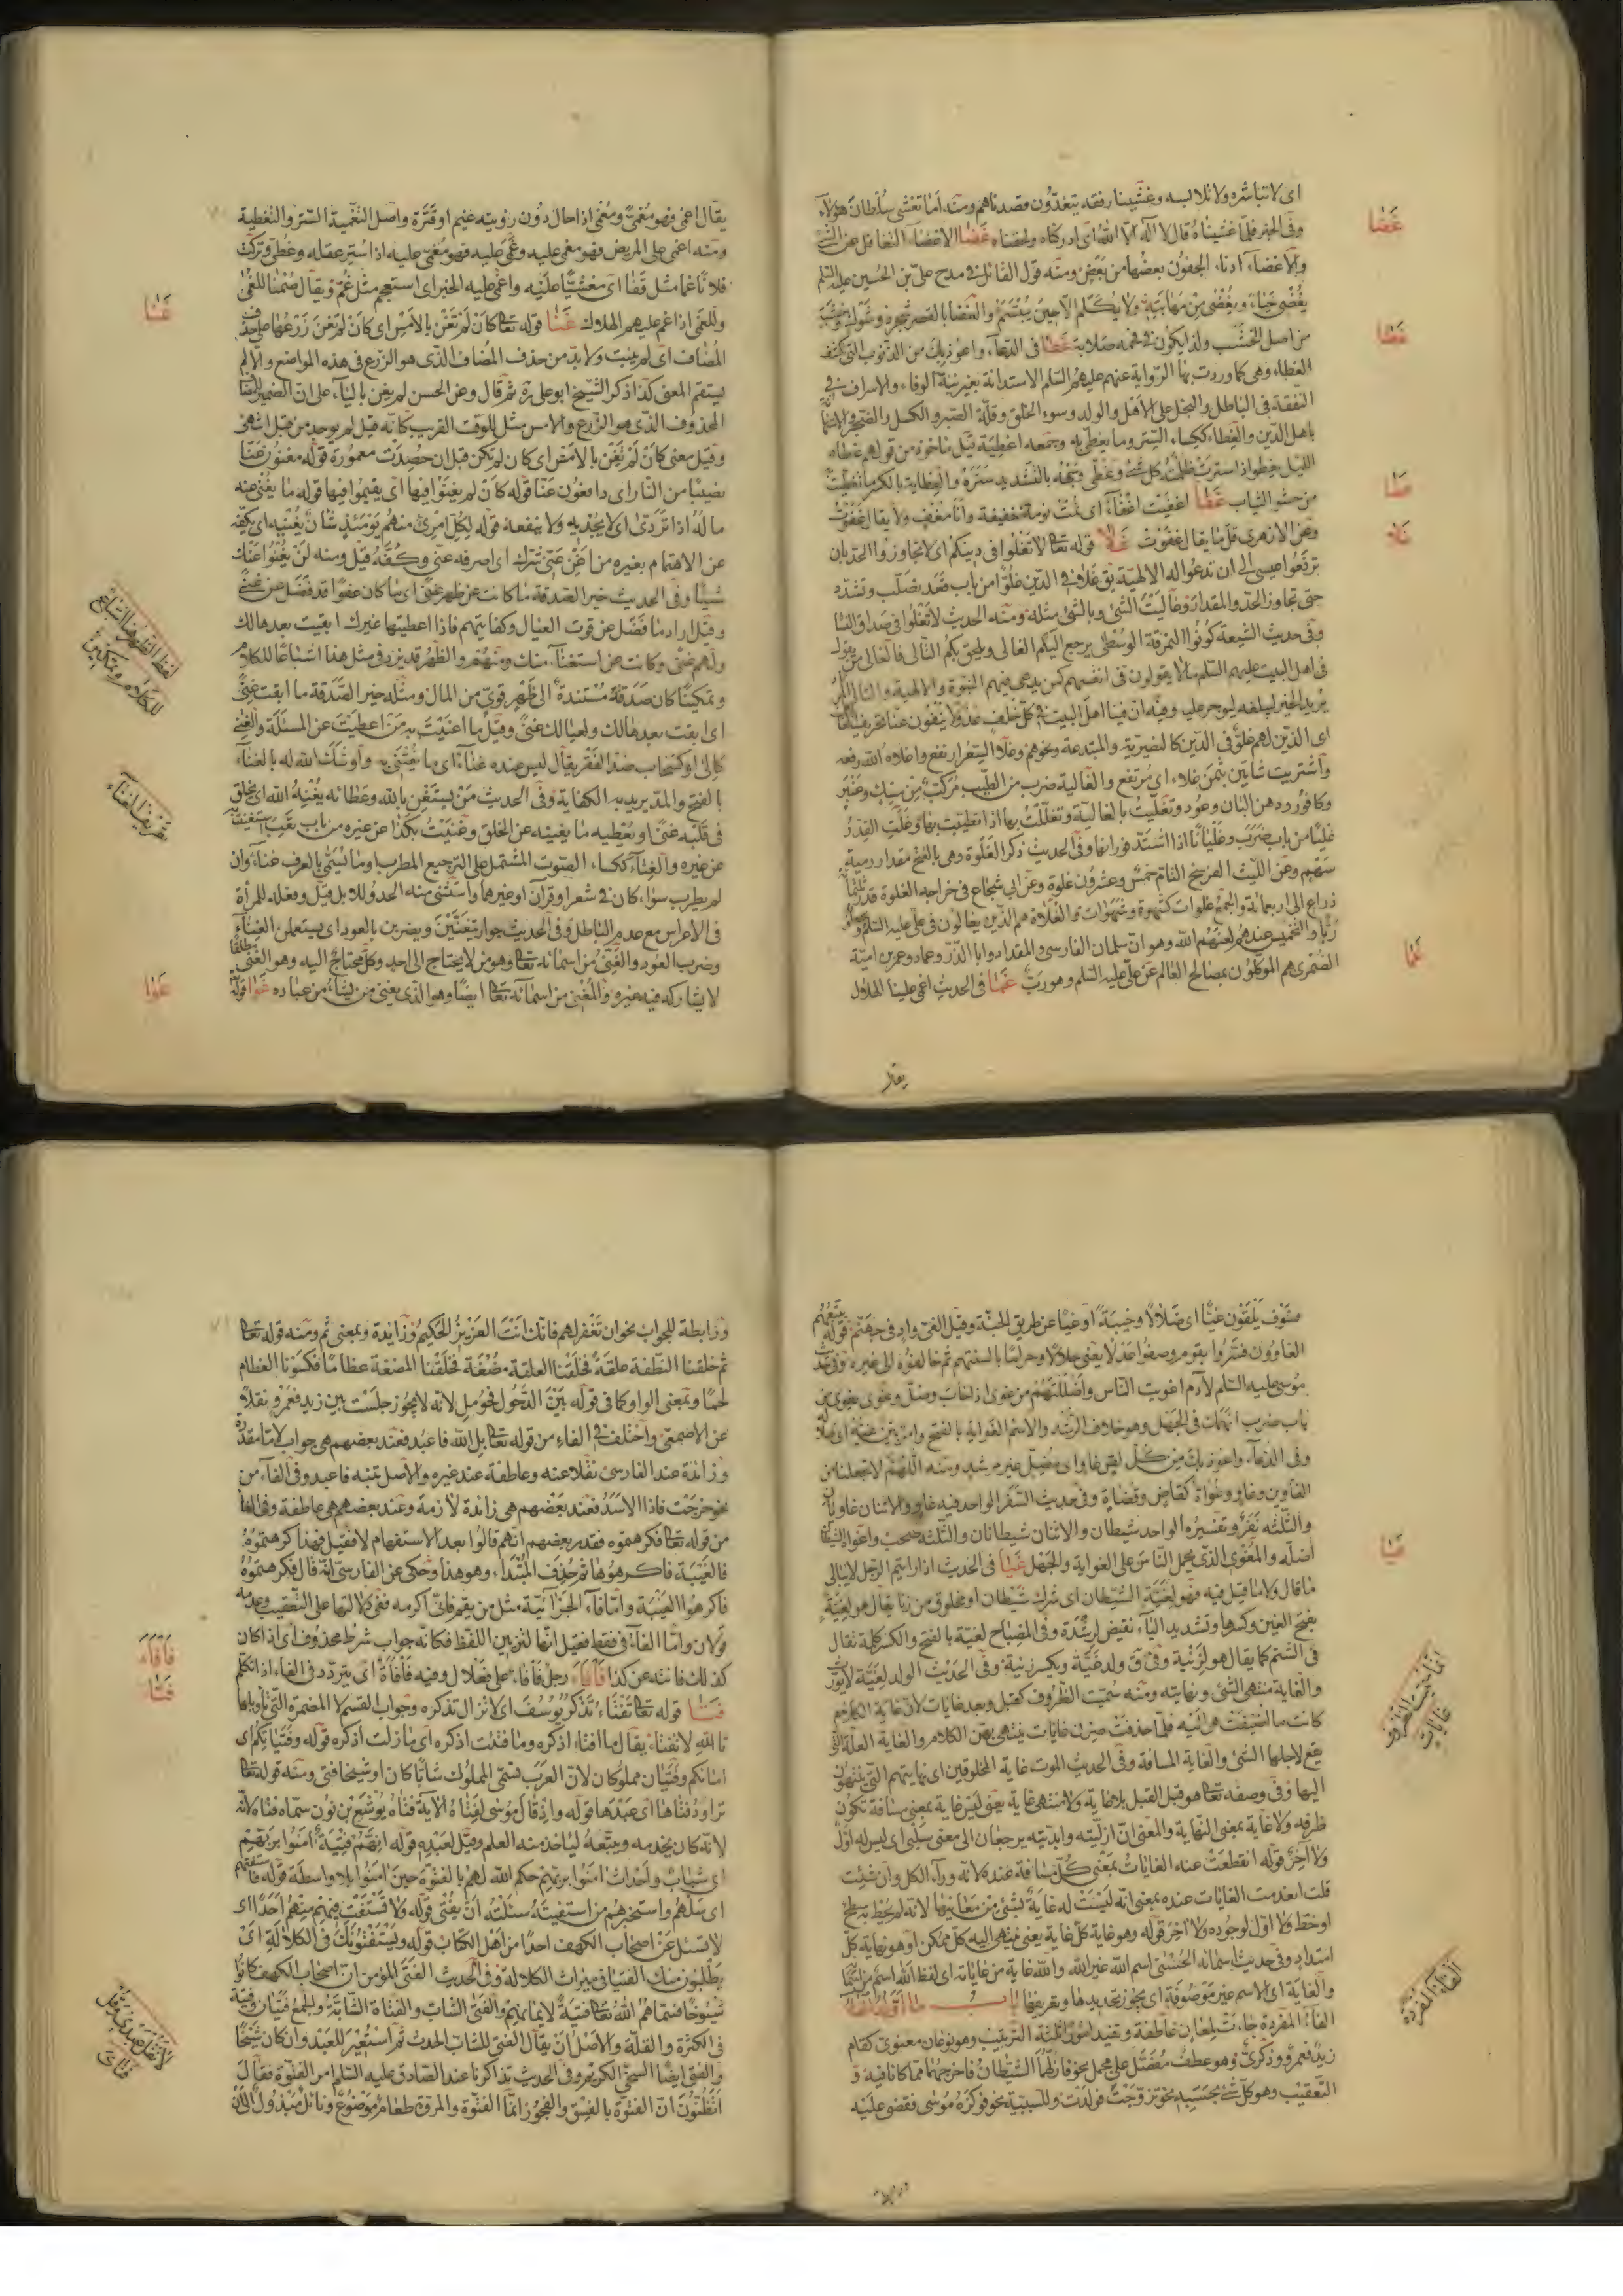 اى لا تباشره ولا تلابسه وغشينا رفقة يتغدّون قصدناهم ومنه امّا تغشى سلطان هؤلاء
وفى الخبر فلمّا غشيناه قال لا اله الّا الله اى ادركناه ولحقناه غضا الاغضاء التغافل عن الشئ
والاغضاء ادناء الجفون بعضها من بعض ومنه قول القائل فى مدح علىّ بن الحسين عليه السّلم
يُغضى حياءً ويُغضى من مهابته ولا يكلّم الّا حين يبتسم والغضا بالقصر شجر
من اصلب الخشب ولذا يكون فى فحمه صلابة غطا فى الدّعاء واعوذ بك من الذّنوب التى تكشف
الغطاء وهى كما وردت بها الرّواية عنهم عليهم السّلم الاستدانة بغير نيّة الوفاء والاسراف فى
النّفقة فى الباطل والبخل على الاهل والولد وسوء الخلق وقلّة الصّبر والكسل والضّجر
باهل الدّين والغطاء ككساء السّتر وما يغطّى به وجمعه اغطية قيل ماخوذ من قولهم غطاه
اللّيل يغطو اذا سترت ظلمته كلّ شئ وغطّى وجهه بالتّشديد ستره والغطاية بالكسر ما تغطّيت
من حشو الثياب غفا اغفيت اغفاءً اى نمت نومة خفيفة وانا مغف ولا يقال غفوت
وعن الازهرى قلّ ما يقال غفوت غلا قوله تعالى لا تغلوا فى دينكم اى لا تجاوزوا الحدّ بان
ترفعوا عيسى الى ان تدعوا له الالهيّة يق غلا فى الدّين غلوّا من باب قعد تصلّب وتشدّد
حتى تجاوز الحدّ والمقدار وغاليت الشئ وبالشئ مثله ومنه الحديث لا تغلوا فى صداق النّسا
وفى حديث الشيعة كونوا النمرقة الوسطى يرجع اليكم الغالى ويلحق بكم التّالى فالغالى من يقول
فى اهل البيت عليهم السّلم ما لا يقولون فى انفسهم كمن يدعى فيهم النبوّة والالهية والتالى
يريد الخير ليبلغه ليوجر عليه وفيه انّ فينا اهل البيت فى كلّ خلف عدولا ينفون عنّا تحريف الغالين
اى الذين لهم غلوّ فى الدّين كالنصيريّة والمبتدعة ونحوهم وغلا السّعر ارتفع واغلاه الله رفعه
واشتريت شاتين بثمن غلاء اى مرتفع والغالية ضرب من الطّيب مركّب من مسك وعنبر
وكافور ودهن البان وعود وتغلّيت بالغالية وتغلّلت بها اذا تطيّبت بها وغلت القدر
غليًا من باب ضرب وغليانًا اذا اشتدّ فورانها وفى الحديث ذكر الغلوة وهى بالفتح مقدار رمية
سهم وعن اللّيث الفرسخ التام خمس وعشرون غلوة وعن ابى شجاع فى خراجه الغلوة قدر
ذراع الى اربعمائة والجمع غلوات كشهوة وشهوات والغلاة هم الّذين يغالون فى علىّ عليه السّلم
ربّا والتخميس عندهم لعنهم الله وهو انّ سلمان الفارسى والمقداد وابا الذّر وعمار وعمر بن اميّة
الضّمرى هم الموكلون بمصالح العالم عن علىّ عليه السّلم وهو ربّ غما فى الحديث اغمى علينا الهلال
يقال
غضا
غطا
غفا
غلا
غما
يقال اغمى فهو مغمى ومغمّى اذا حال دون رؤيته غيم او قترة واصل التغمية السّتر والتغطية
ومنه اغمى على المريض فهو مغمى عليه وغمّى عليه فهو مغمّى عليه اذا ستر عقله وغطى وتركت
فلانًا غما مثل قفا اى مغشيًّا عليه واغمى عليه الخبر اى استعجم مثل غمّ ويقال صمنا للغمّى
وللغمى اذا غمّ عليهم الهلال غنا قوله تعالى كان لم تغن بالامس اى كان لم تغن زرعها على حذف
المضاف اى لم ينبت ولا بدّ من حذف المضاف الّذى هو الزّرع فى هذه المواضع والّا لم
يستقم المعنى كذا ذكر الشيخ ابو على ره ثم قال وعن الحسن لم يغن بالياء على انّ الضمير للمضاف
المحذوف الّذى هو الزّرع والامس مثل للوقت القريب كانّه قيل لم يوجد من قبل انتهى
وقيل معنى كان لم تغن بالامس اى كان لم تكن قبل ان حصدت معمورة قوله مغنون عنّا
نصيبًا من النّار اى دافعون عنّا قوله كان لم يغنوا فيها اى يقيموا فيها قوله ما يغنى عنه
ماله اذا تردّى اى لا يجديه ولا ينفعه قوله لكلّ امرئ منهم يومئذ شان يغنيه اى يكفّه
عن الاهتمام بغيره من اغن عنّى شرّك اى اصرفه عنّى وكفّه قيل ومنه لن يغنوا عنك
شيئًا وفى الحديث خير الصّدقة ما كانت عن ظهر غنى اى ما كان عفوا قد فضل عن غنى
وقيل اراد ما فضل عن قوت العيال وكفايتهم فاذا اعطيتها غيرك ابقيت بعدها لك
ولهم غنى وكانت عن استغناء منك ومنهم والظهر قد يزيد فى مثل هذا اشباعًا للكلام
وتمكينًا كان صدقة مستندة الى ظهر قوىّ من المال ومثله خير الصّدقة ما ابقت غنى
اى ابقت بعدها لك ولعيالك غنى وقيل ما اغنيت به من اعطيت عن المسئلة والغنى
كالى او كسحاب ضدّ الفقر يقال ليس عنده غناء اى ما يغتنى به واوشك الله له بالغناء
بالفتح والمدّ يريد به الكفاية وفى الحديث من يستغن بالله وعطائه يغنيه الله اى يخلق
فى قلبه غنى او يعطيه ما يغنيه عن الخلق وغنيت بكذا عن غيره من باب تعب استغنيت به
عن غيره والغناء ككساء الصّوت المشتمل على الترجيع المطرب او ما يسمّى بالعرف غناء وان
لم يطرب سواء كان فى شعر او قرآن او غيرهما واستثنى منه الحدو للابل قيل وفعله للمرأة
فى الاعراس مع عدم الباطل وفى الحديث جوار يتغنّين ويضربن بالعود اى يستعملن الغناء
وضرب العود والغنىّ من اسمائه تعالى وهو من لا يحتاج الى احد وكلّ محتاج اليه وهو الغنى مطلقًا
لا يشاركه فيه غيره والمغنى من اسمائه تعالى ايضًا وهو الّذى يغنى من يشاء من عباده غوا قوله
غنا
لفظ الظهر هنا اشباع
للكلام وتمكين
تعريف الغناء
غوا
فسوف يلقون غيّا اى ضلالًا وخيبة او غيًّا عن طريق الجنّة وقيل الغىّ واد فى جهنّم قوله يتّبعهم
الغاوون فسّروا بقوم وصفوا عدلا يعنى حلالًا وحرامًا بالسنتهم ثم خالفوه الى غيره وفى حديث
موسى عليه السّلم لآدم اغويت النّاس واضللتهم من غوى اذا خاب وضلّ وغوى يغوى من
باب ضرب انهمك فى الجهل وهو خلاف الرّشد والاسم الغواية بالفتح
وفى الدّعاء واعوذ بك من كلّ لصّ غاو اى مضلّ غير مرشد ومنه اللّهمّ لا تجعلنا من
الغاوين وغاو وغواة كقاض وقضاة وفى حديث السّفر الواحد فيه غاو والاثنان غاويان
والثلثة نفر وتفسيره الواحد شيطان والاثنان شيطانان والثلثة صحب واغواه الشيطان
اضلّه والمغوى الّذى يحمل النّاس على الغواية والجهل غيا فى الحديث اذا رايتم الرّجل لا يبالى
ما قال ولا ما قيل فيه فهو لغيّة الشيطان اى شرك شيطان او مخلوق من زنا يقال هو لغيّة
بفتح الغين وكسرها وتشديد الياء نقيض لرشدة وفى المصباح لغيّة بالفتح والكسر كلمة تقال
فى الشّتم كما يقال هو لزنية وفى ق ولد غيّة ويكسر زنية وفى الحديث الولد لغيّة لا يورث
والغاية منتهى الشئ ونهايته ومنه سمّيت الظّروف كقبل وبعد غايات لانّ غاية الكلام
كانت ما اضيفت هى اليه فلمّا حذفت صرن غايات ينتهى بهنّ الكلام والغاية العلّة التى
يقع لاجلها الشئ والغاية المسافة وفى الحديث الموت غاية المخلوقين اى نهايتهم التى ينتهون
اليها وفى وصفه تعالى هو قبل القبل بلا غاية ولا منتهى غاية يعنى ليس غاية بمعنى مسافة تكون
ظرفه ولا غاية بمعنى النّهاية والمعنى انّ ازليّته وابديّته يرجعان الى معنى سلبى اى ليس له اوّل
ولا آخر قوله انقطعت عنه الغايات بمعنى كلّ مسافة عنده لانّه وراء الكل وان شئت
قلت انعدمت الغايات عنده بمعنى انّه ليست له غاية لشئ من معانيها لانّه لم يحط به سطح
او خطّ ولا اوّل لوجوده ولا آخر قوله وهو غاية كلّ غاية يعنى ينتهى اليه كلّ ممكن او هو نهاية كلّ
امتداد وفى حديث اسمائه الحسنى اسم الله غير الله والله غاية من غاياته اى لفظ الله اسم من اسمائه
والغاية اى الاسم غير موصوفة اى يجوز تحديدها وتعريفها باب ما اوّله الفاء
الفاء المفردة جاءت لمعان عاطفة وتفيد امورًا ثلثة الترتيب وهو نوعان معنوى كقام
زيد فعمرو وذكرى وهو عطف مفصّل على مجمل نحو فازلّهما الشيطان فاخرجهما ممّا كانا فيه و
التّعقيب وهو كلّ شئ بحسبه نحو تزوّجت فولدت وللسببيّة نحو فوكزه موسى فقضى عليه
غيا
انّما سمّيت الظّروف
غايات
الفاء المفردة
ورابطة للجواب نحو ان تغفر لهم فانّك انت العزيز الحكيم وزائدة وبمعنى ثمّ ومنه قوله تعالى
ثم خلقنا النّطفة علقة فخلقنا العلقة مضغة فخلقنا المضغة عظامًا فكسونا العظام
لحمًا وبمعنى الواو كما فى قوله بين الدّخول فحومل لانّه لا يجوز جلست بين زيد فعمرو نقلًا
عن الاصمعى واختلف فى الفاء من قوله تعالى بل الله فاعبد فعند بعضهم هى جواب لامّا مقدّرة
وزائدة عند الفارسى نقلا عنه وعاطفة عند غيره والاصل تنبّه فاعبد وفى الفاء من
نحو خرجت فاذا الاسد فعند بعضهم هى زائدة لازمة وعند بعضهم هى عاطفة وفى الفا
من قوله تعالى فكرهتموه فقدّر بعضهم انّهم قالوا بعد الاستفهام لا فقيل فهذا كرهتموه
فالغيبة فاكرهوها ثم حذف المبتداء وهو هذا وحكى عن الفارسى انّه قال فكرهتموه
فاكرهوا الغيبة وامّا فاء الجزائيّة مثل من يقم فانّى اكرمه ففى دلالتها على التّعقيب وعدمه
قولان وامّا الفاء فى فقط فقيل انّها لتزيين اللّفظ فكانّه جواب شرط محذوف اى اذا كان
كذلك فانته عن كذا فافاء رجل فافاء على فعلال وفيه فافاة اى يتردّد فى الفاء اذا تكلّم
فتا قوله تعالى تفتاء تذكر يوسف اى لا تزال تذكره وجواب القسم لا المضمرة التى تاويلها
تالله لا تفتاء يقال ما افتاء اذكره وما فتئت اذكره اى ما زلت اذكره قوله وفتياتكم اى
امائكم وفتيان مملوكان لانّ العرب تسمّى المملوك شابًّا كان او شيخا فتى ومنه قوله تعالى
تراود فتاها اى عبدها قوله واذ قال موسى لفتاه الآية فتاه يوشع بن نون سمّاه فتاه لانّه
لانّه كان يخدمه ويتبعه لياخذ منه العلم وقيل لعبده قوله انّهم فتية آمنوا بربّهم
اى شباب واحداث آمنوا بربّهم حكم الله لهم بالفتوّة حين آمنوا بلا واسطة قوله فاستفتهم
اى سلهم واستخبرهم من استفتيته سئلته ان يفتى قوله ولا تستفت فيهم منهم احدًا اى
لا تسئل عن اصحاب الكهف احدًا من اهل الكتاب قوله ويستفتونك فى الكلالة اى
يطلبون منك الفتيا فى ميراث الكلالة وفى الحديث الفتى المؤمن انّ اصحاب الكهف كانوا
شيوخًا فسمّاهم الله تعالى فتية لايمانهم والفتى الشاب والفتاة الشابّة والجمع فتيان وفتية
فى الكثرة والقلّة والاصل ان يقال الفتى للشابّ الحدث ثم استعير للعبد وان كان شيخًا
والفتى ايضًا السخى الكريم وفى الحديث تذاكرنا عند الصادق عليه السّلم امر الفتوّة فقال
اتظنّون انّ الفتوّة بالفسق والفجور انّما الفتوّة والمروّة طعام موضوع ونائل مبذول
فافاء
فتا
لا تقل عبدى وقل
فتاى